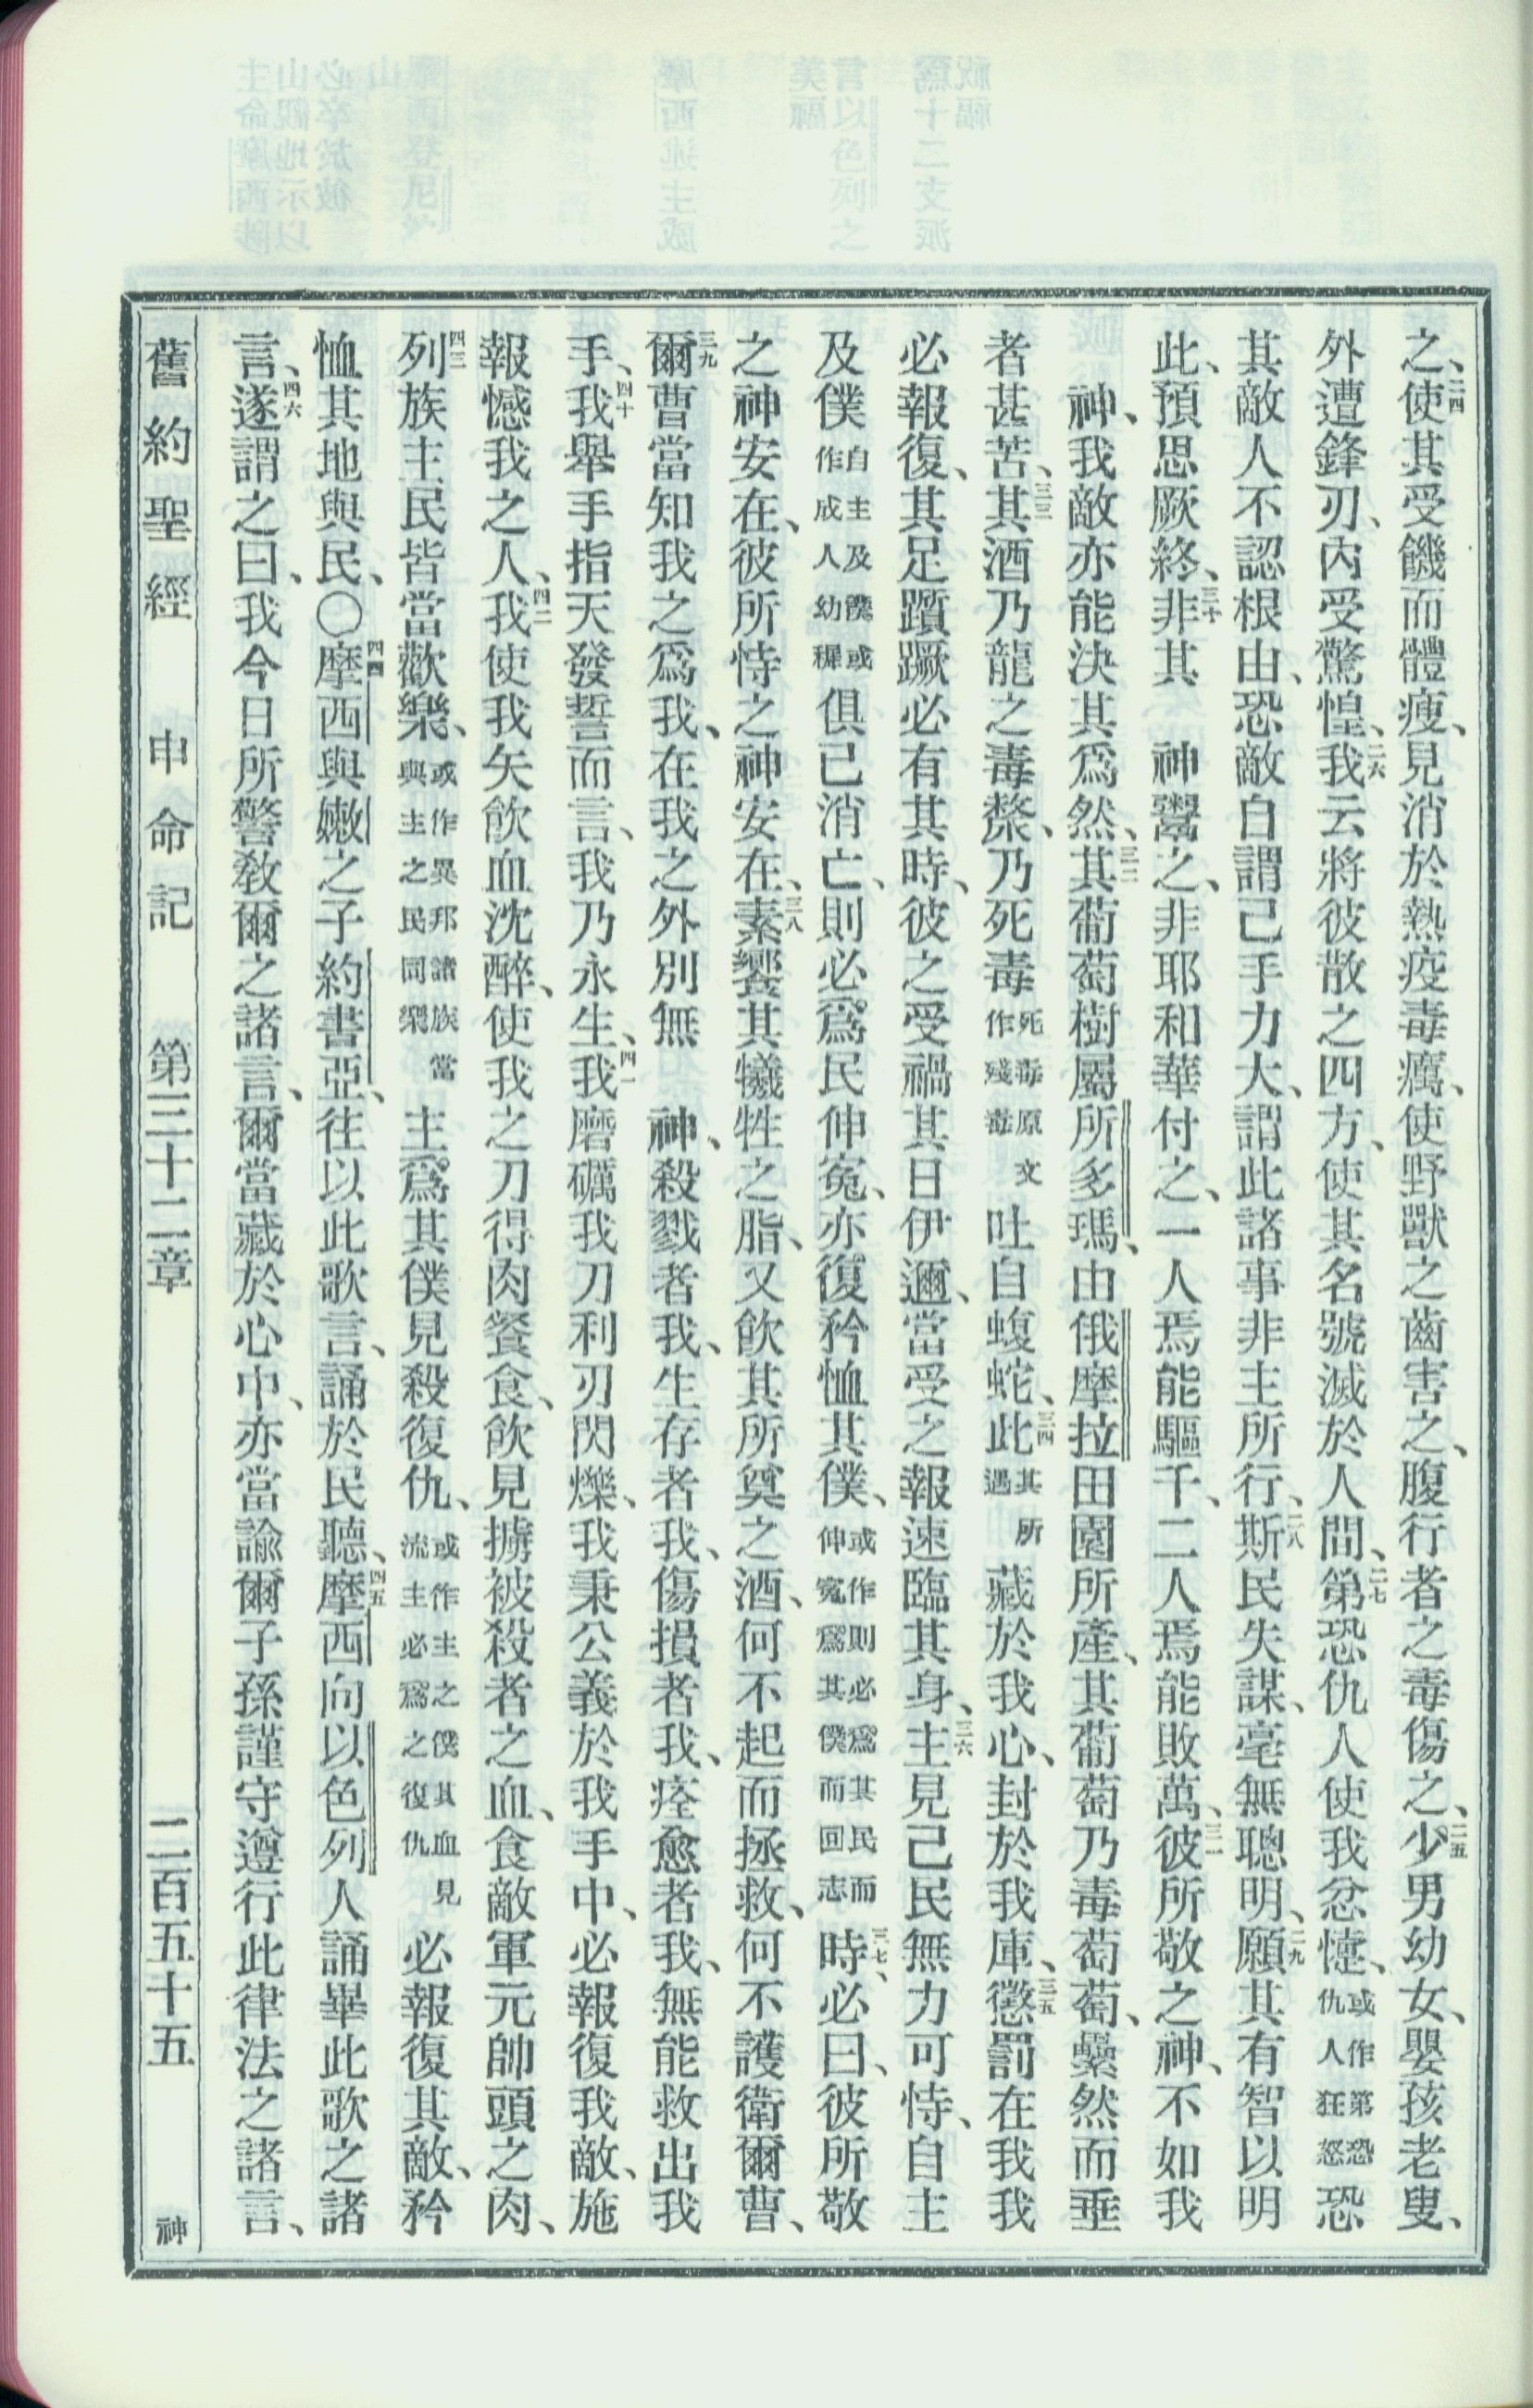 之、二四使其受饑而體瘦、見消於熱疫毒癘、使野獸之齒害之、腹行者之毒傷之、二五少男幼女、嬰孩老叟、
外遭鋒刃、內受驚惶、二六我云將彼散之四方、使其名號滅於人間、二七第恐仇人使我忿懥、或作第恐仇人狂怒恐
其敵人不認根由、恐敵自謂己手力大、謂此諸事非主所行、二八斯民失謀、毫無聰明、二九願其有智以明
此、預思厥終、三十非其　神鬻之、非耶和華付之、一人焉能驅千、二人焉能敗萬、三一彼所敬之神、不如我
神、我敵亦能決其爲然、三二其葡萄樹屬所多瑪、由俄摩拉田園所產、其葡萄乃毒萄萄、纍然而垂
者甚苦、三三其酒乃龍之毒漦、乃死毒死毒原文作殘毒吐自蝮蛇、三四此其所遇藏於我心、封於我庫、三五懲罰在我我
必報復、其足躓蹶必有其時、彼之受禍其日伊邇、當受之報速臨其身、三六主見己民無力可恃、自主
及僕自主及僕或作成人幼穉俱已消亡、則必爲民伸寃、亦復矜恤其僕、或作則必爲其民而伸寃爲其僕而回志三七時、必曰、彼所敬
之神安在、彼所恃之神安在、三八素饗其犧牲之脂、又飲其所奠之酒、何不起而拯救、何不護衛爾曹、
三九爾曹當知我之爲我、在我之外別無　神、殺戮者我、生存者我、傷損者我、痊愈者我、無能救出我
手、四十我舉手指天發誓而言、我乃永生、四一我磨礪我刀利刃閃爍、我秉公義於我手中、必報復我敵、施
報憾我之人、四二我使我矢飲血沈醉、使我之刀得肉餐食、飲見擄被殺者之血、食敵軍元帥頭之肉、
四三列族主民皆當歡樂、或作異邦諸族當與主之民同樂主爲其僕見殺復仇、或作主之僕其血見流主必爲之復仇必報復其敵、矜
恤其地與民、〇四四摩西與嫩之子約書亞、往以此歌言、誦於民聽、四五摩西向以色列人誦畢此歌之諸
言、四六遂謂之曰、我今日所警教爾之諸言、爾當藏於心中、亦當諭爾子孫謹守遵行此律法之諸言、
舊約聖經　申命記　第三十二章　二百五十五　神